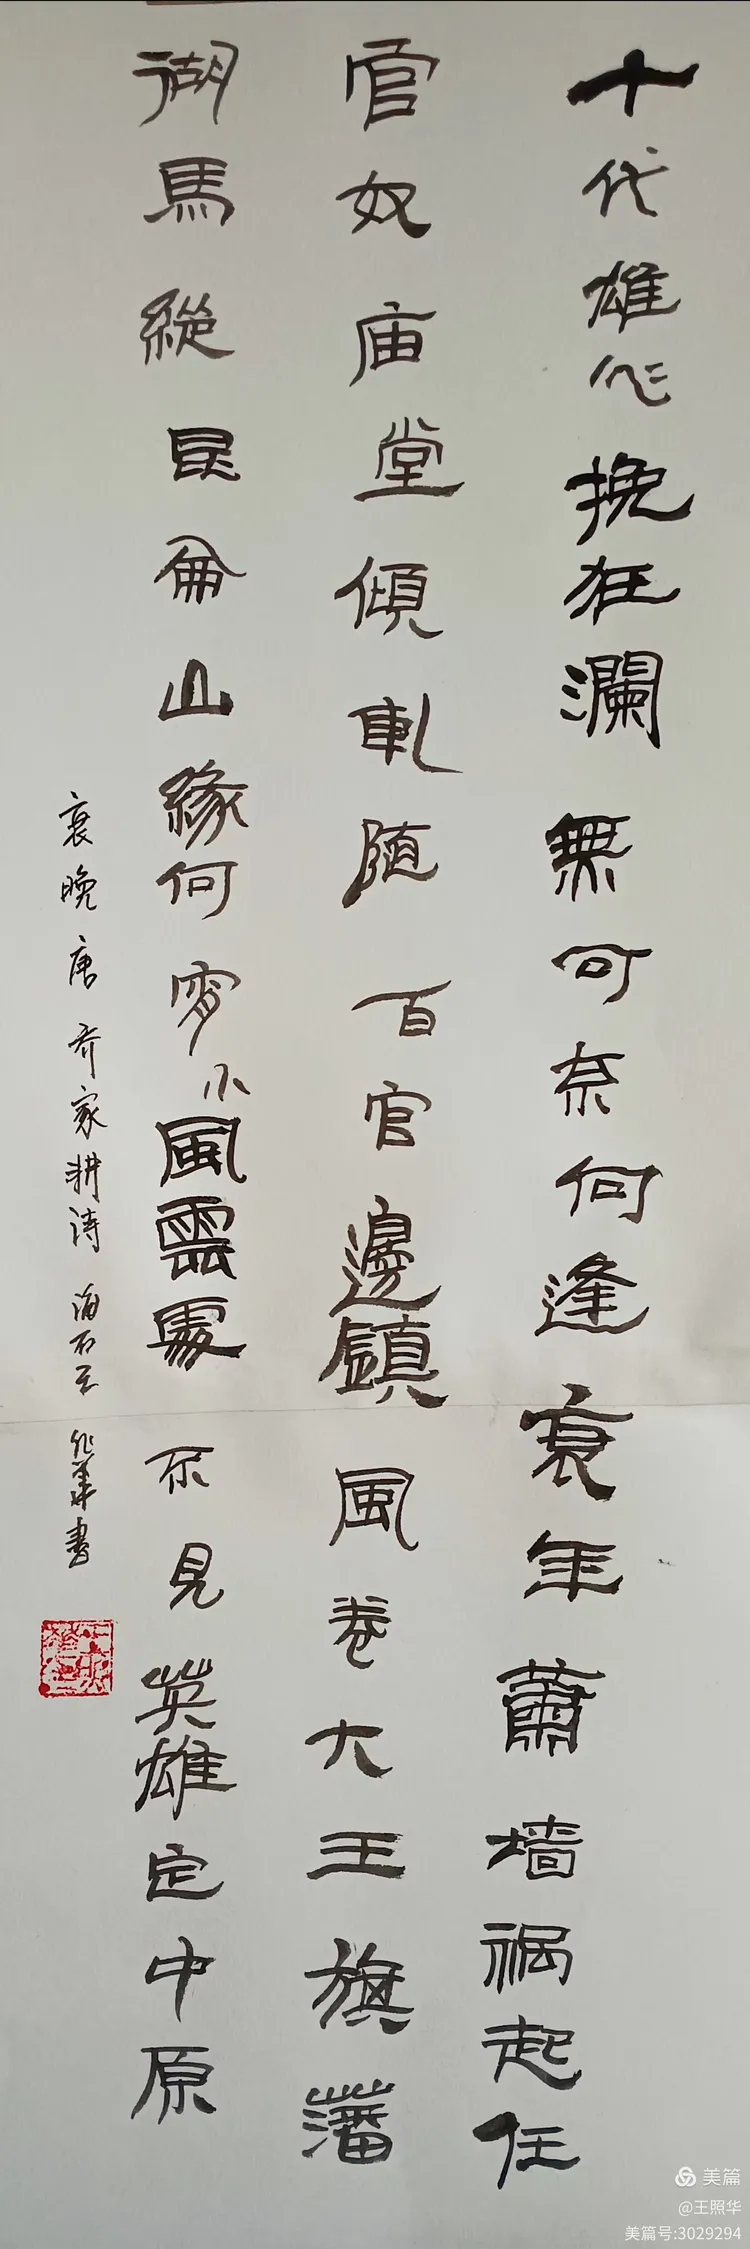 十代雄心挽狂瀾無可奈何逢衰年蕭墙祸起任
官奴庙堂傾軋随百官邊鎮風卷大王旗藩
湖馬縱昆侖山緣何宵小風雲處不見英雄定中原
衰晚唐 乔家耕诗 海石王 兆華書
美篇
@王照华
美篇号:3029294